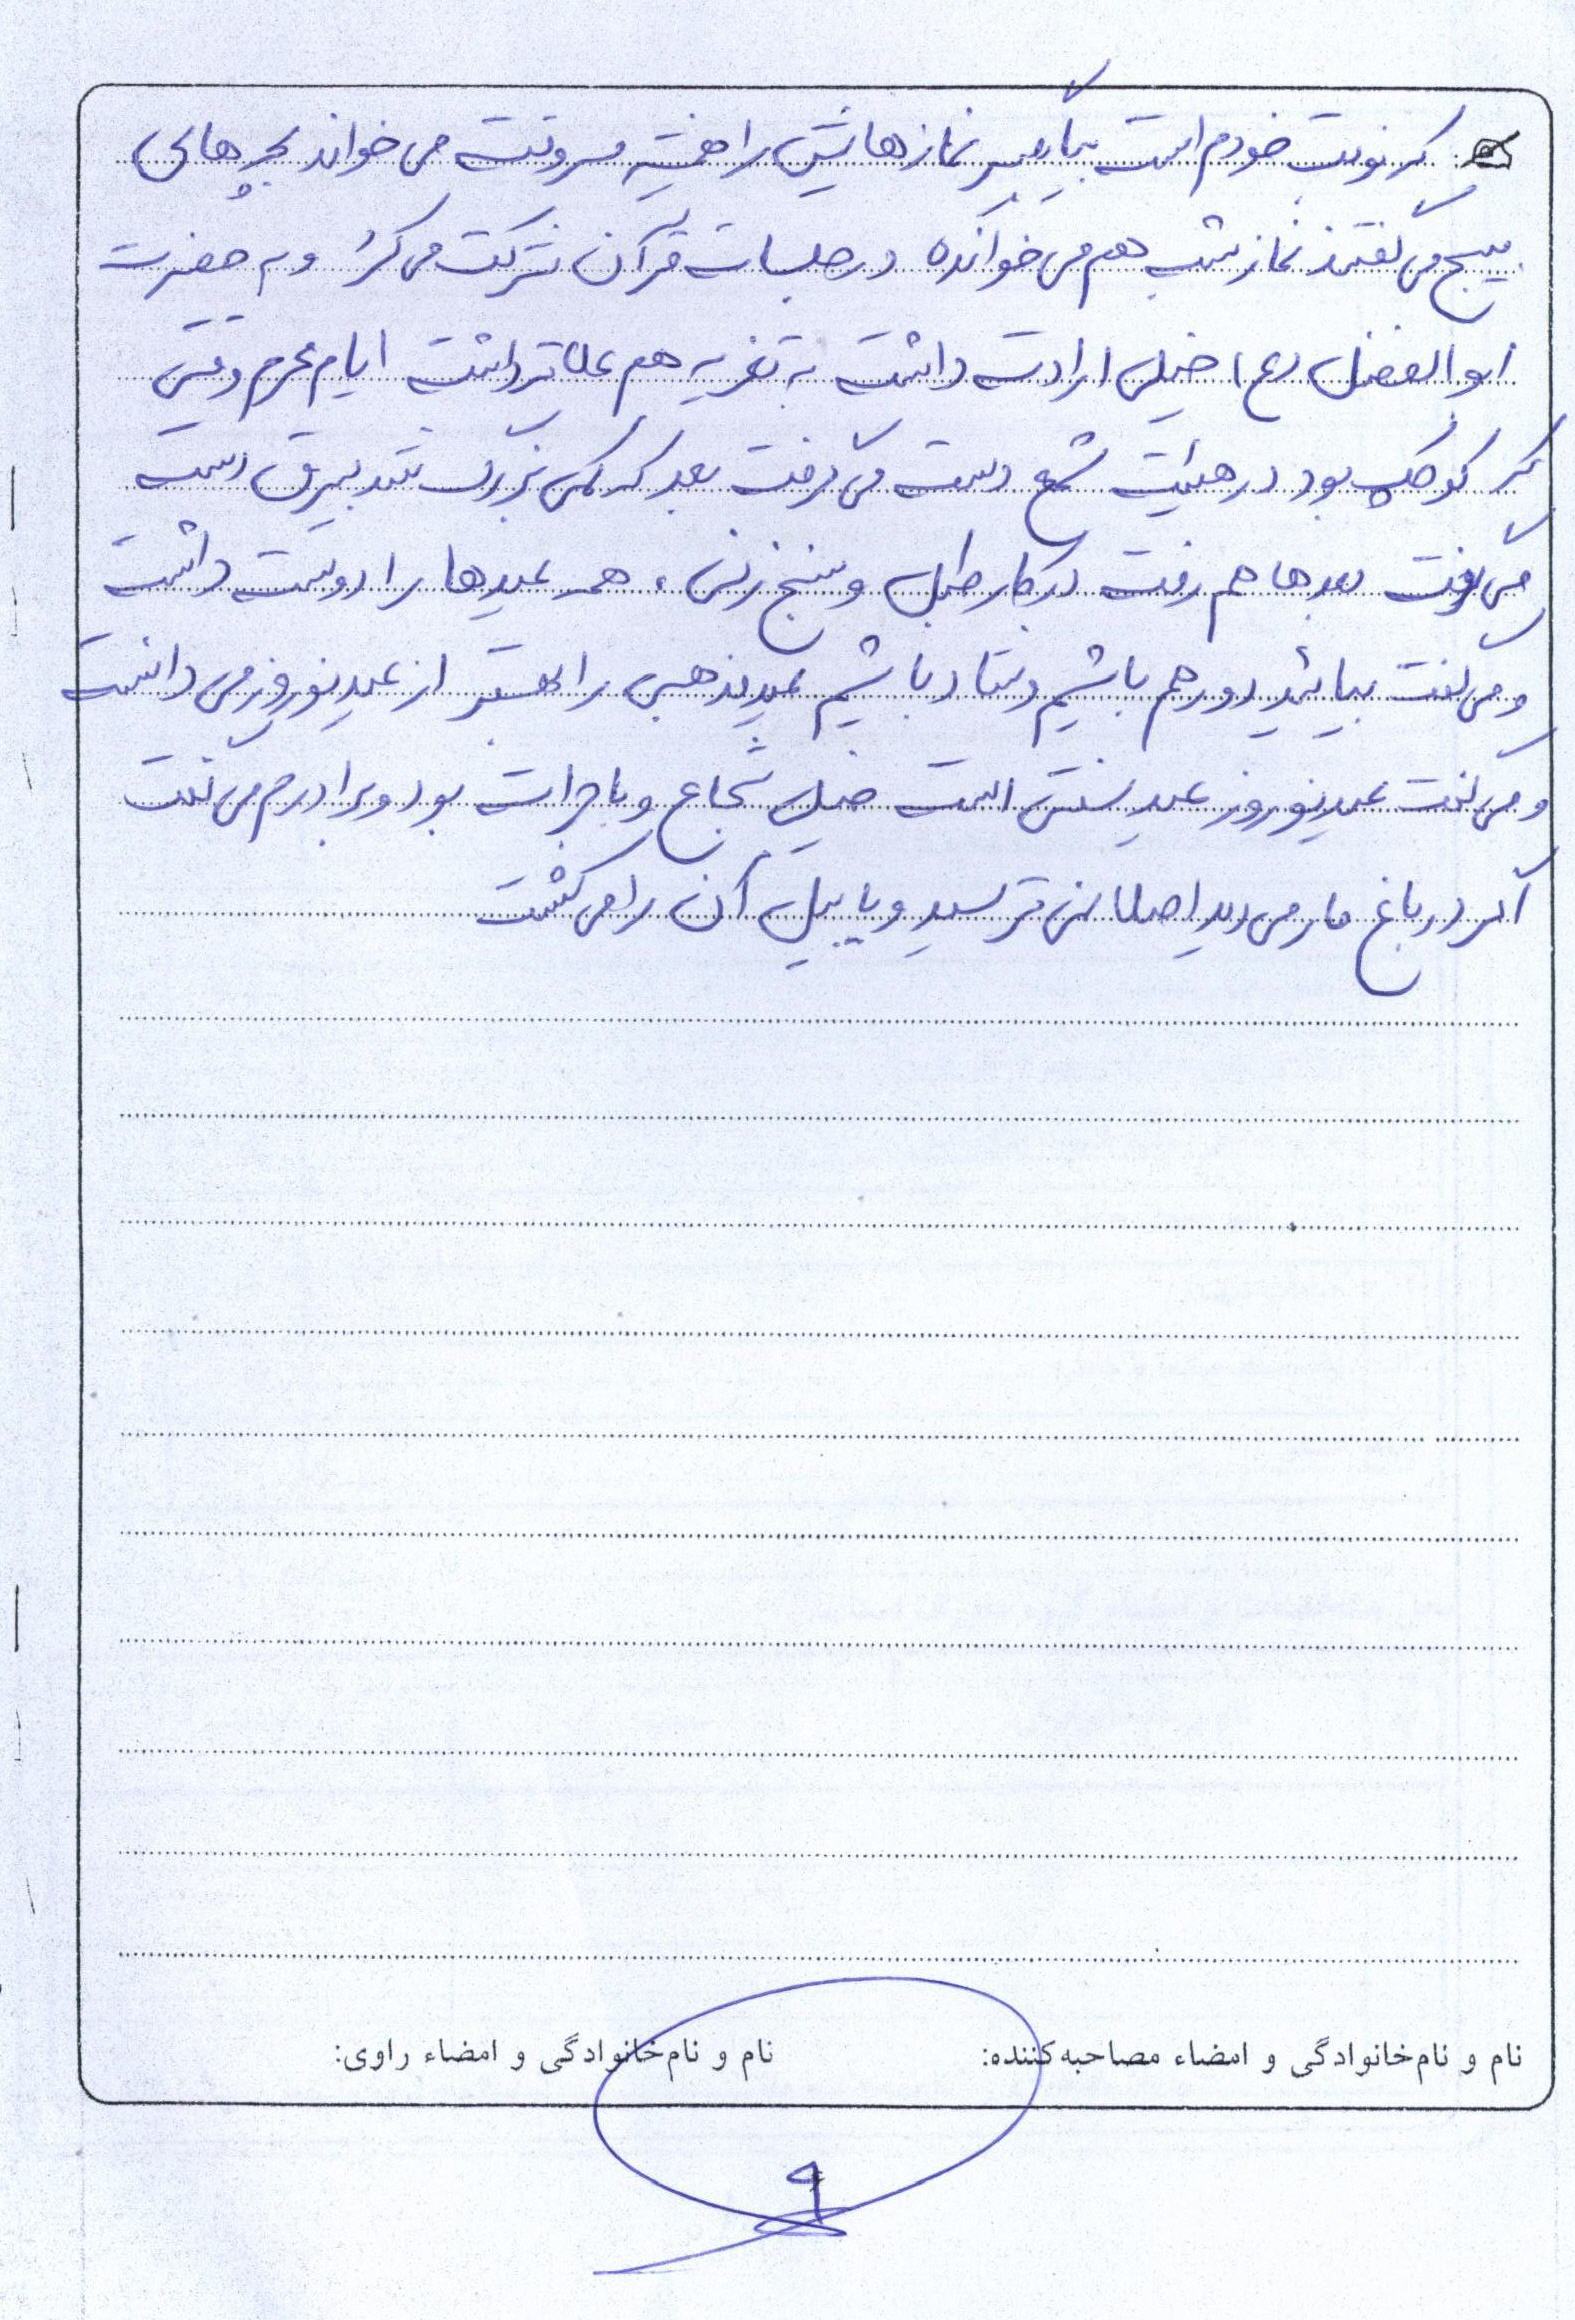 که نوبت خودم است بیدارم نمازهایش را همیشه سر وقت می خواند بچه های
بسیج می گفتند نماز شب هم می خوانده در جلسات قرآن شرکت می کرد و به حضرت
ابوالفضل (ع) خیلی ارادت داشت به تعزیه هم علاقه داشت ایام محرم وقتی
که کوچک بود در هیئت شمع دست می گرفت بعد که کمی بزرگ شد بیرق دست
می گرفت بعدها هم رفت در کار طبل و سنج زنی، همه عیدها را دوست داشت
و می گفت بیائید دور هم باشیم و شاد باشیم عید مذهبی را بهتر از عید نوروز می دانست
و می گفت عید نوروز عید سنتی است خیلی شجاع و با جرات بود و برادرم می گفت
اگر در باغ مار می دید اصلا نمی ترسید و با بیل آن را می کشت
نام و نام‌خانوادگی و امضاء مصاحبه‌کننده: نام و نام‌خانوادگی و امضاء راوی:
۹